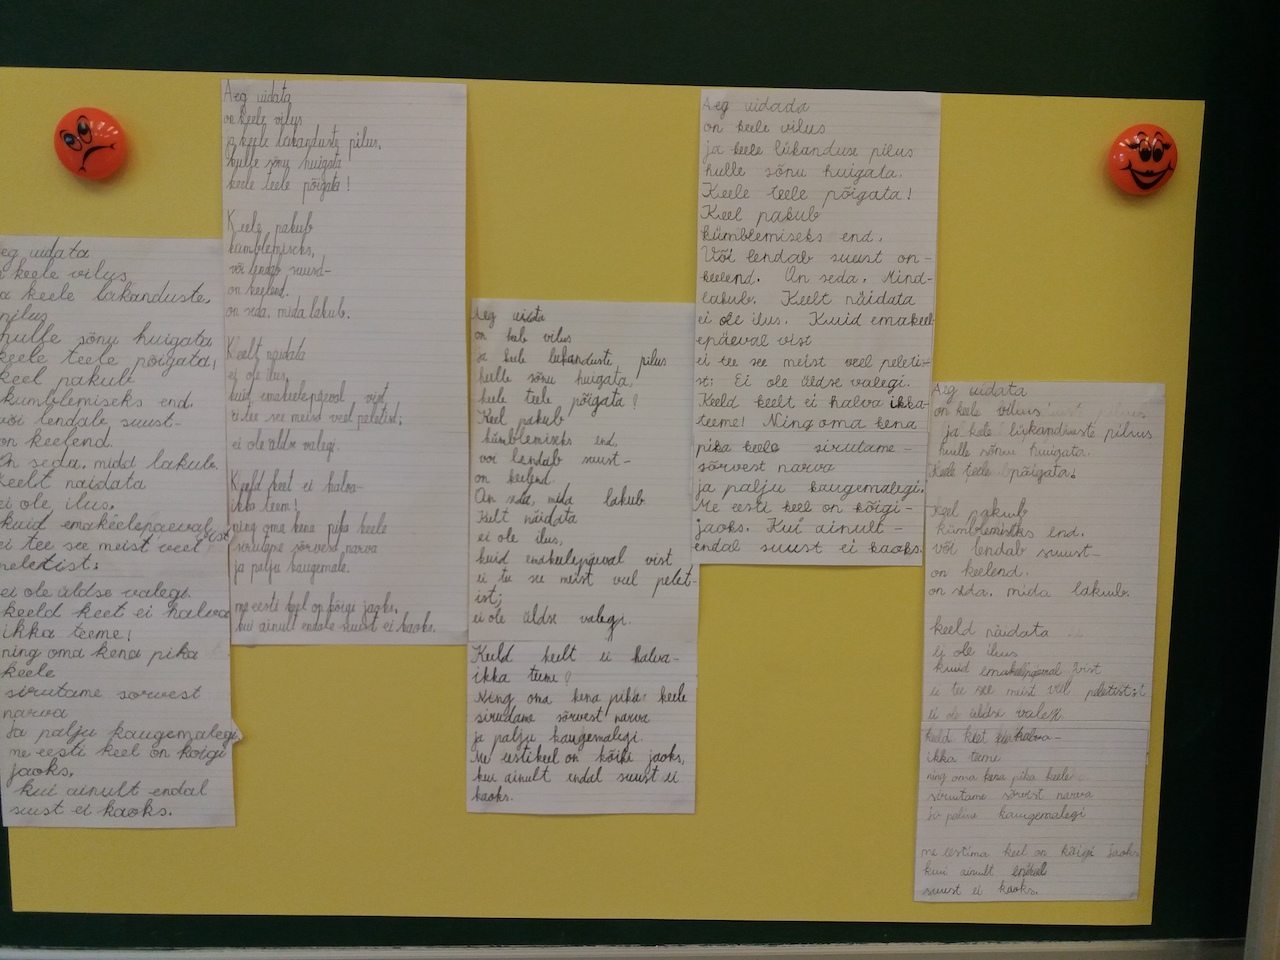 eg uidata
keele vilus
a keele lükanduste,
pilus
hulle sõnu huigata
keele teele põigata!
keel pakub
kümblemiseks end.
või lendab suust-
on keelend.
On seda, midd lakub.
Keelt näidata
ei ole ilus.
kuid emakeelepäeval vist
ei tee see meist veel
peletist:
ei ole üldse valegi.
keeld keet ei halva
ikka teeme!
ning oma kena pika
keele
sirutame sorvest
narva
ja palju kaugemalegi
me eesti keel on kõigi
jaoks,
kui ainult endal
suust ei kaoks.
Aeg uidata
on keele vilus
ja keele lükanduste pilus,
hulle sõnu huigata
keele teele põigata!
Keele pakub
kümblemiseks,
või lendab suust-
on keelend.
on seda, mida lakub.
Keelt näidata
ei ole ilus,
kuid emakeelepäeval vist
ei tee see meist veel peletist;
ei ole üldse valegi.
Keeld keet ei halva-
ikka teem!
ning oma kena pika keele
sirutame sõrvest narva
ja palju kaugemale.
me eesti keel on kõigi jaoks,
kui ainult endale suust ei kaoks.
Aeg uidata
on keele vilus
ja keele lükanduste pilus
hulle sõnu huigata,
keele teele põigata!
Keel pakub
kümblemiseks end,
või lendab suust-
on keelend.
On seda, mida lakub
Kelt näidata
ei ole ilus,
kuid emakeelepäeval vist
ei tee see meist veel pelet-
ist;
ei ole üldse valegi.
Keeld keelt ei halva-
ikka teeme!
Ning oma kena pika keele
sirudame sõrvest narva
ja palju kaugemalegi.
Me eestikeel on kõiki jaoks,
kui ainult endal suust ei
kaoks.
Aeg uidada
on keele vilus
ja keele lükanduse pilus
hulle sõnu huigata.
Keele teele põigata!
Keel pakub
kümblemiseks end.
Või lendab suust on-
keelend. On seda. Mind-
lakub. Keelt näidata
ei ole ilus. Kuid emakeel-
epäeval vist
ei tee see meist veel peleti-
st: Ei ole üldse valegi.
Keeld keelt ei halva ikka-
teeme! Ning oma kena
pika keele sirutame-
sõrvest narva
ja palju kaugemalegi.
Me eesti keel on kõigi-
jaoks. Kui ainult-
endal suust ei kaoks.
Aeg uidata
on keele vilus
ja keele lükanduste pilus
hulle sõnu huigata.
Keele teele põigata!
Keel pakub
kümblemiseks end.
või lendab suust-
on keelend.
on seda, mida lakub.
keeld näidata
ei ole ilus
kuid emakeelpäeval vist
ei tee see meist veel peletist;
ei ole üldse valegi
keeld keet halva-
ikka teeme
ning oma kena pika keele
siruitame sõrvest narva
ja palue kaugemalegi
me eestima keel on kõigi jaoks
kui ainult
suust ei kaoks.